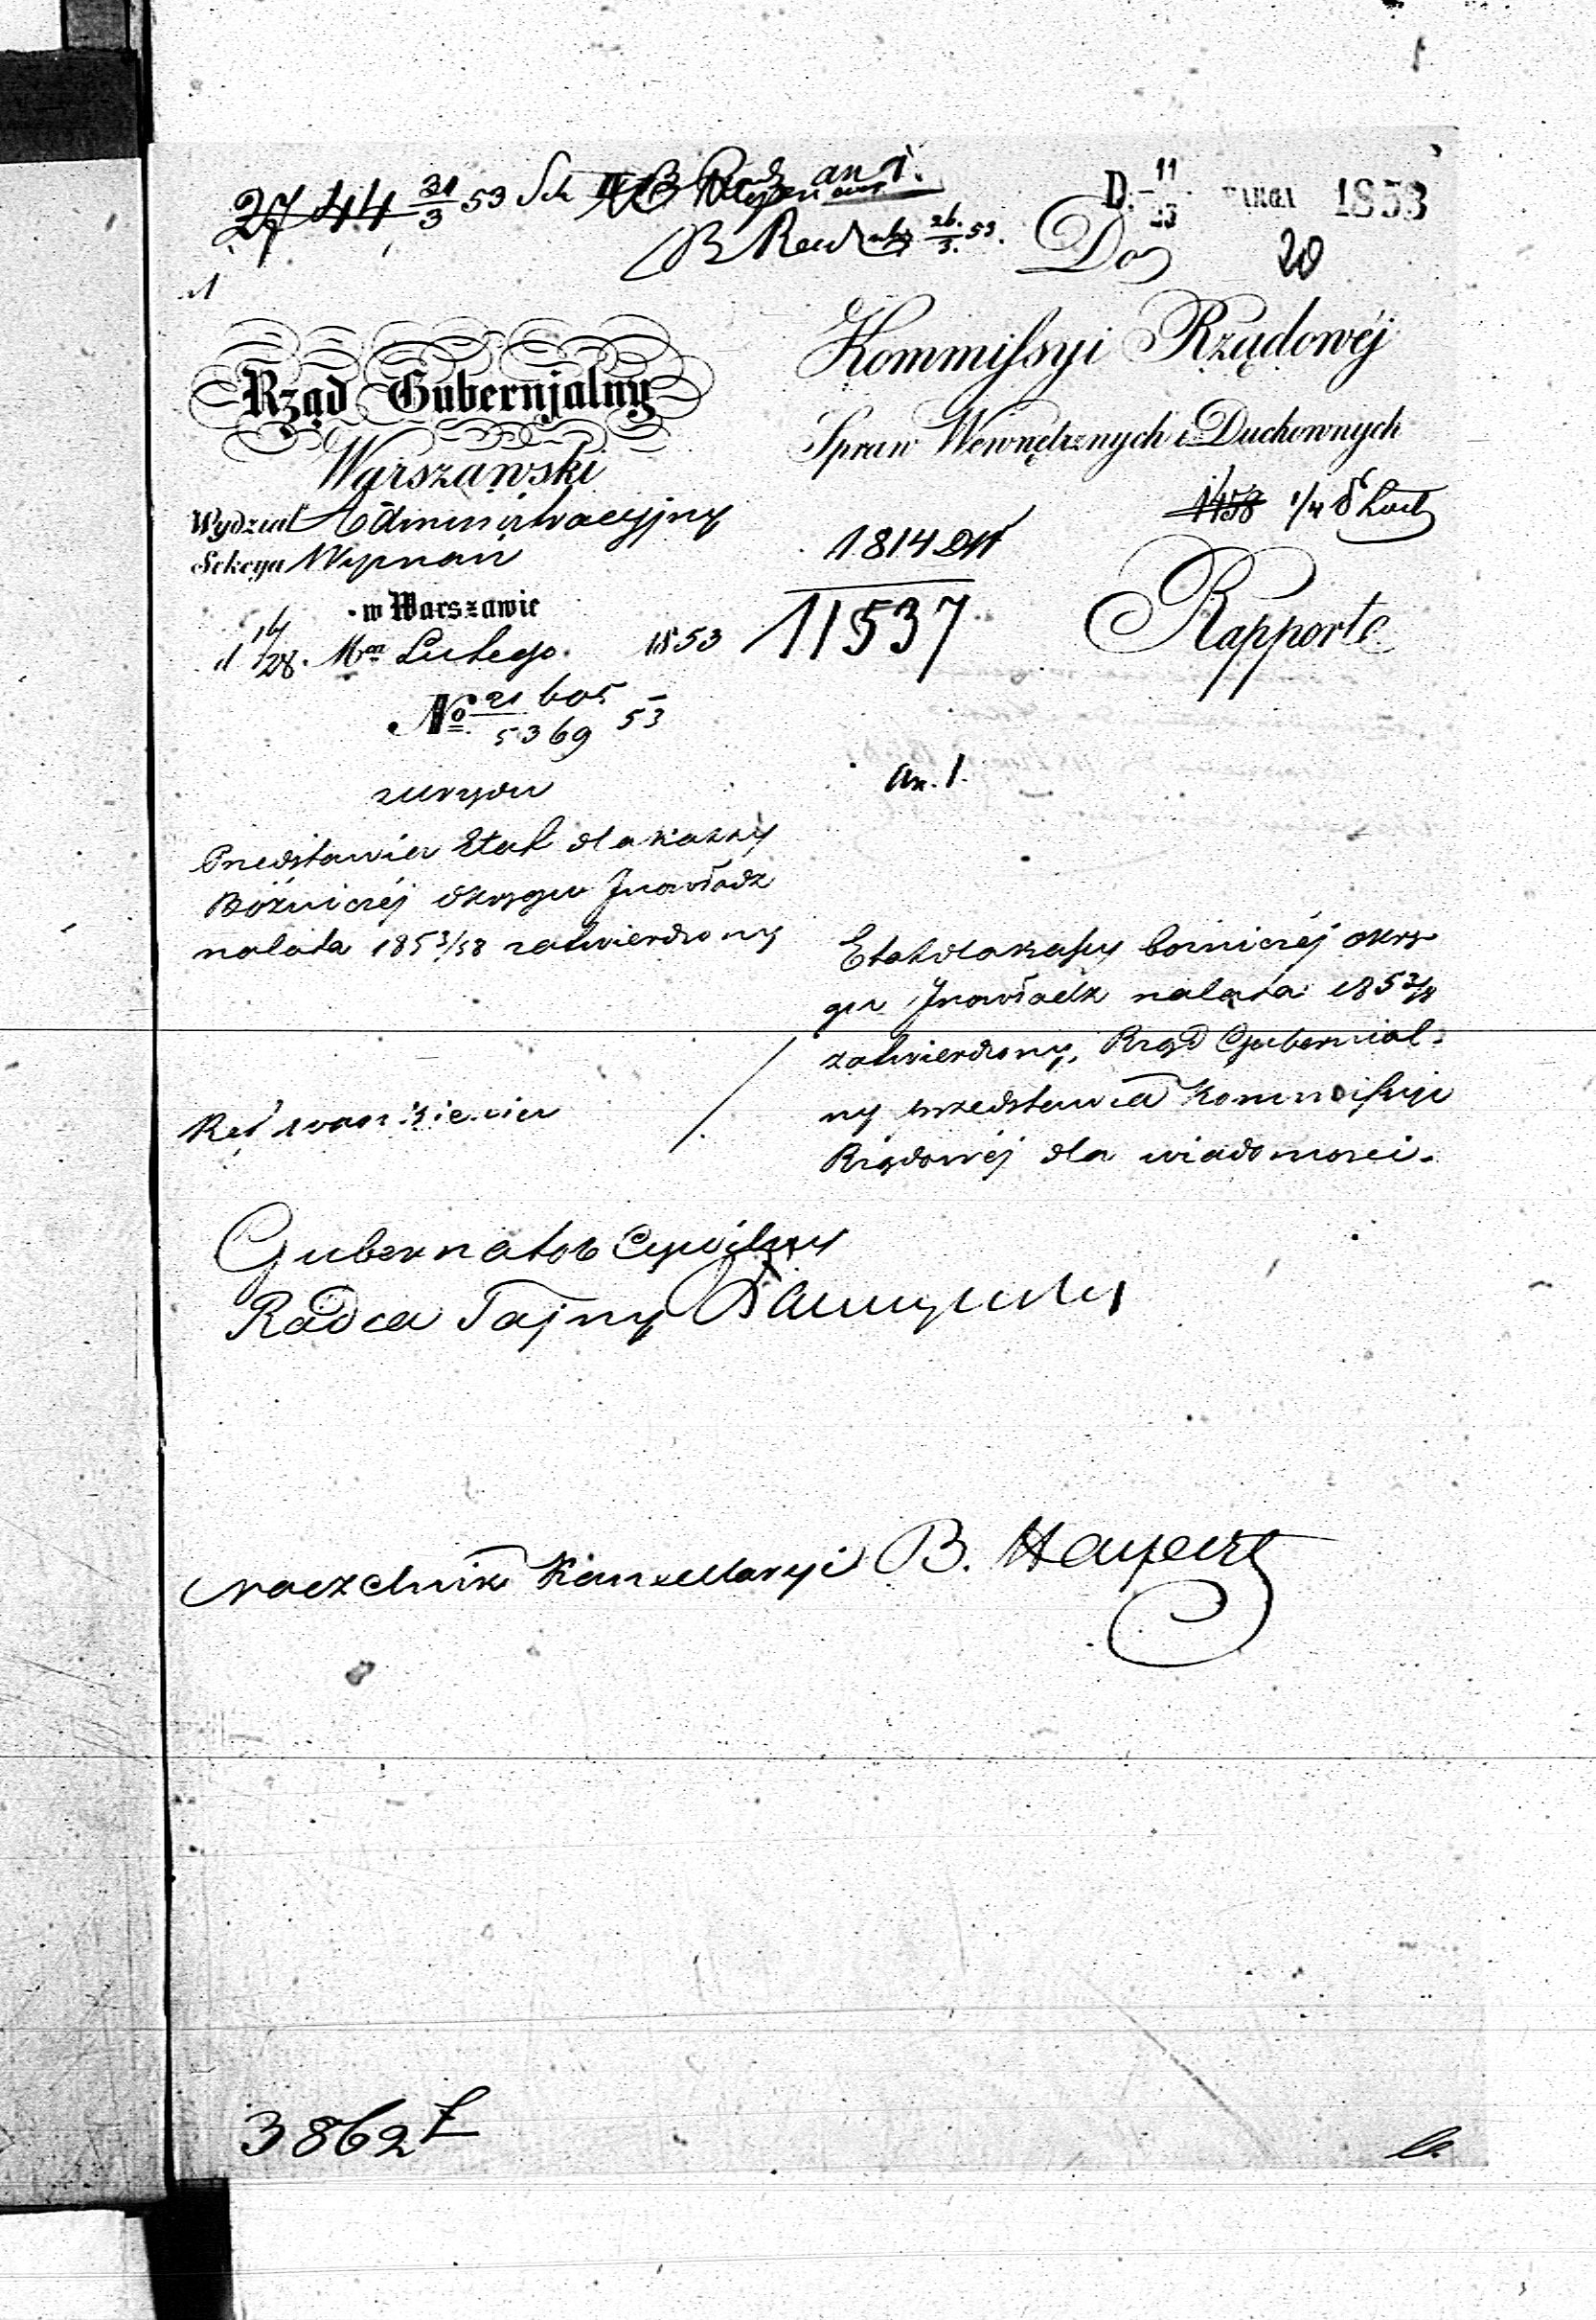 2744 31/3 53
an 1.
26/3. 53.
D. 11/23 MARCA 1853
Do
20
Rząd Gubernjalny
Warszawski
Wydział Administracyjny
Sekcya Wyznań
w Warszawie
d 16/28. Mca Lutego. 1853
No 21605/5369 53
Kommissyi Rządowéj
Spraw Wewnętrznych i Duchownych
1458
1814
11537
Rapport
an. 1.
Przedstawia Etat dla kassy
Bóżniczéj okręgu Inowłodz
na lata 1853/58 zatwierdzony
Etat dla kassy bożniczéj okrę-
gu Inowłodz na lata 1853/8
zatwierdzony, Rząd Gubernial-
ny przedstawia Kommissyi
Rządowéj dla wiadomości.
Gubernator Cywilny
Radca Tajny
Naczelnik Kancellaryi B.
3862